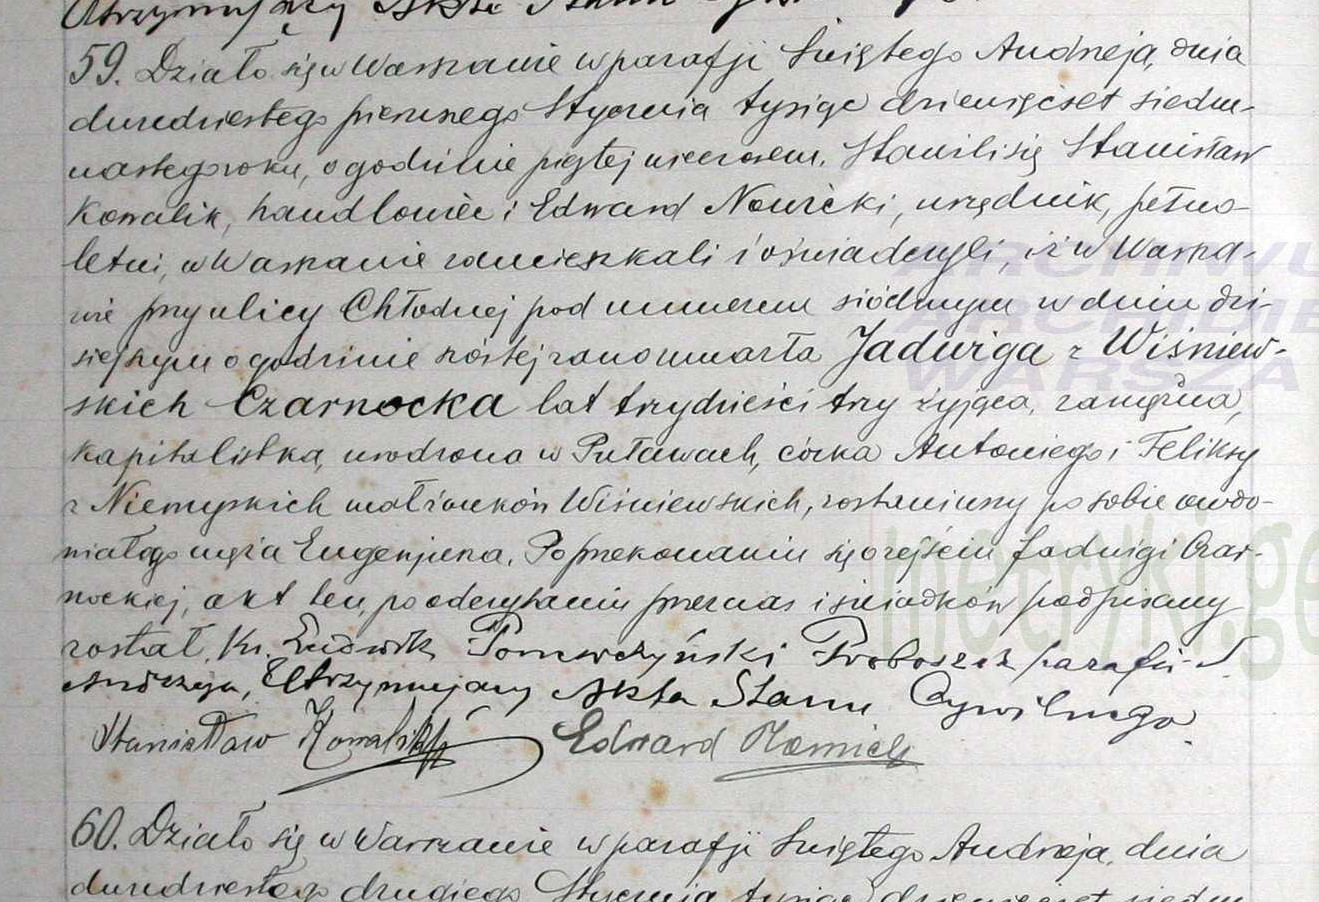 Utrzymujący Akta Stanu
59. Działo się w Warszawie w parafji Świętego Andrzeja, dnia
dwudziestego pierwszego Stycznia tysiąc dziewięćset siedm-
nastego roku, o godzinie piątej wieczorem. Stawili się Stanisław
Kowalik, handlowiec i Edward Nowicki, urzędnik, pełno-
letni, w Warszawie zamieszkali i oświadczyli, iż w Warsza-
wie przy ulicy Chłodnej pod numerem siódmym w dniu dzi-
siejszym o godzinie szóstej rano umarła Jadwiga z Wiśniew-
skich Czarnocka lat trzydzieści trzy żyjąca, zamężna,
kapitalistka, urodzona w Puławach, córka Antoniego i Feliksy
z Niemyskich małżonków Wiśniewskich, zostawiwszy po sobie owdo-
wiałego męża Eugenjusza. Po przekonaniu się o zejściu Jadwigi Czar-
nockiej, akt ten, po odczytaniu przez nas i świadków podpisany
został. Ks. Ludwik Pomwczyński Proboszcz parafii Ś.
Andrzeja, Utrzymujący Akta Stanu Cywilnego
Stanisław Kowalik Edward Nowicki
60. Działo się w Warszawie w parafji Świętego Andrzeja, dnia
dwudziestego drugiego Stycznia tysiąc dziewięćset siedm-
ARCHIWU
ARCHIDIE
WARSZA
metryki.ge